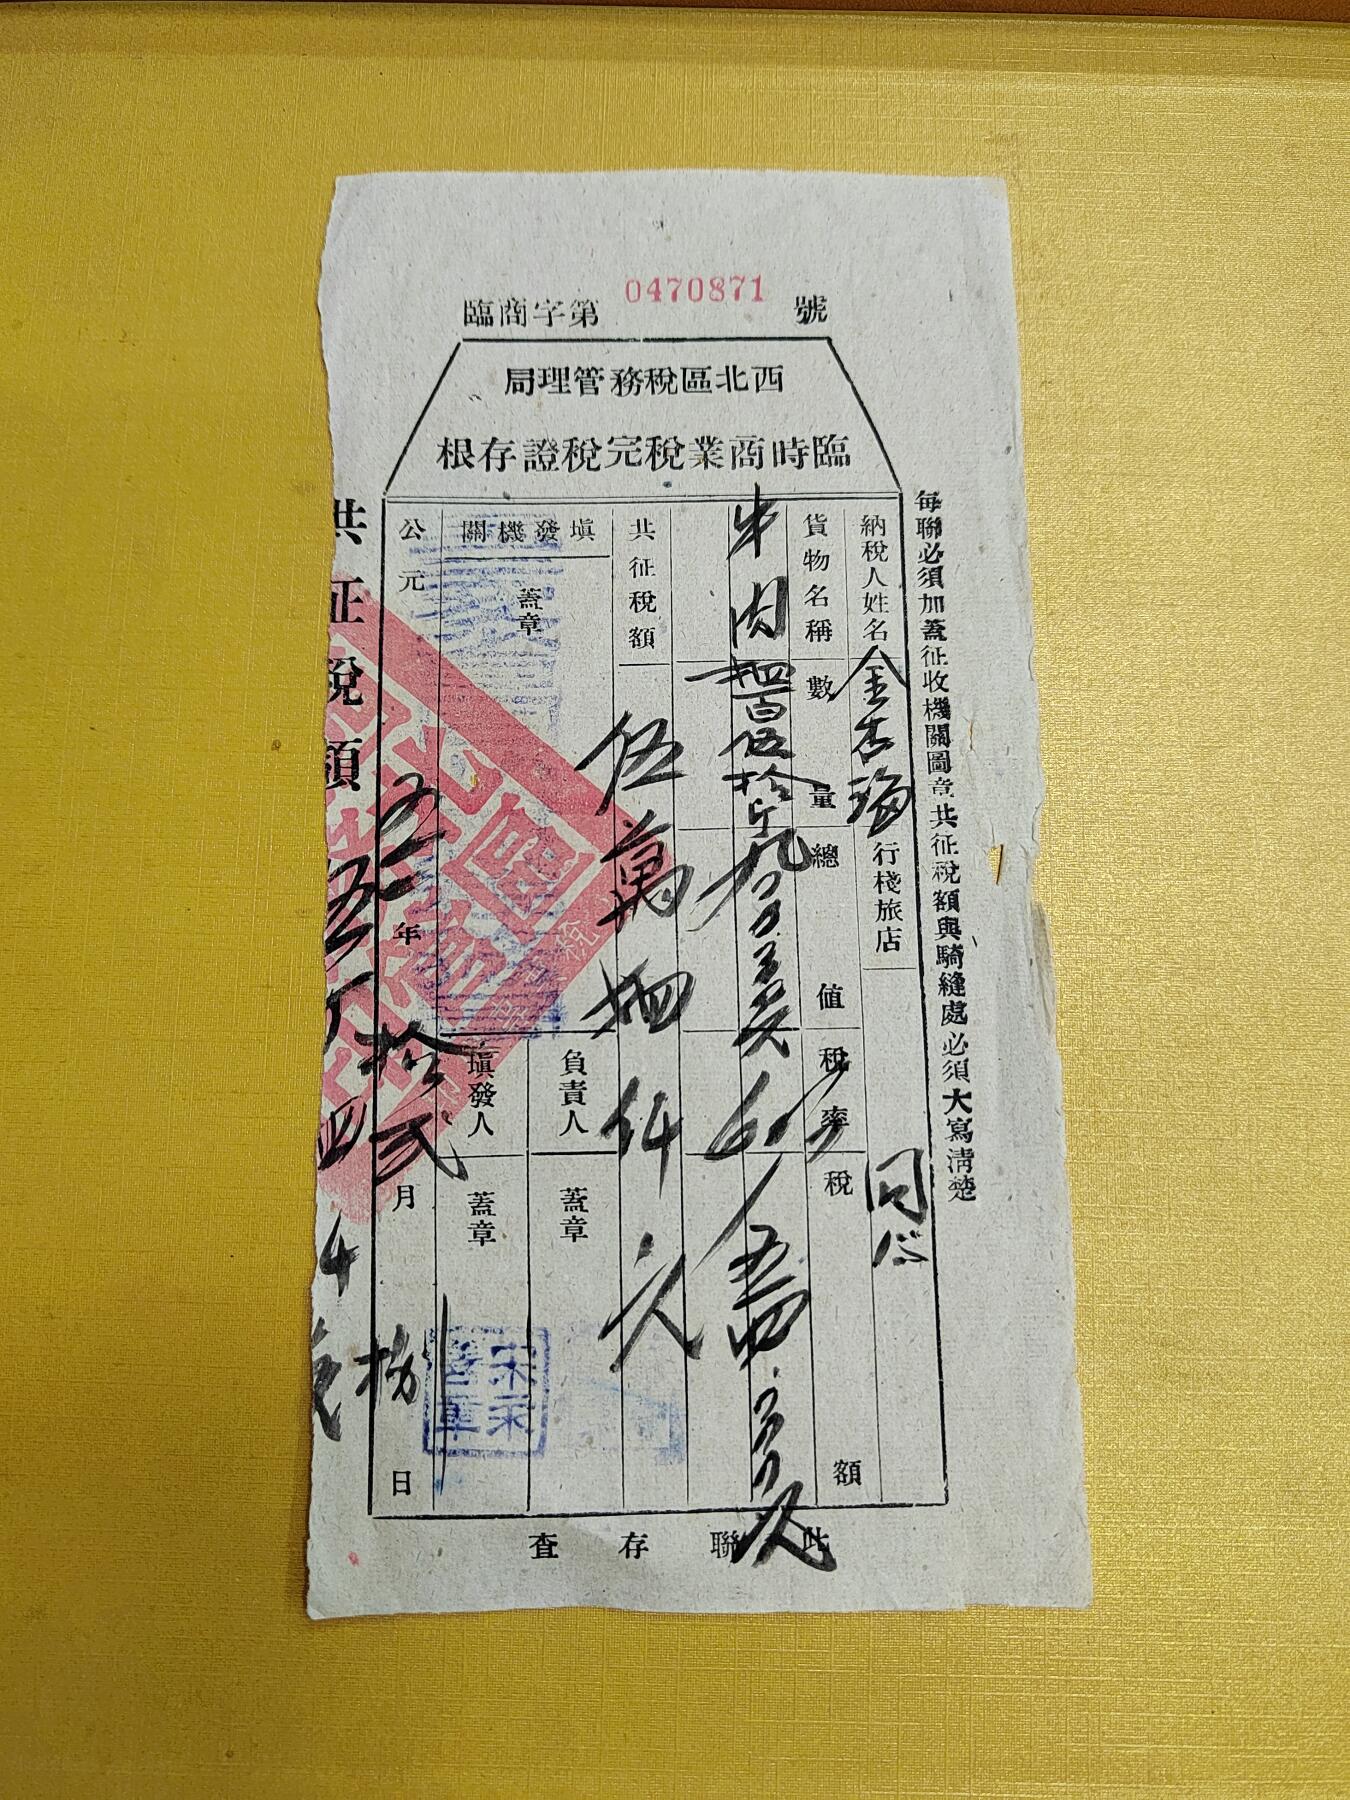 臨商字第 0470871 號
西北區稅務管理局
臨時商業稅完稅證存根
每聯必須加蓋征收機關圖章共征稅額與騎縫處必須大寫清楚
納稅人姓名 金杏海 行棧旅店 同心
貨物名稱 數量 總值 稅率 稅額
牛肉 肆百伍拾斤 九〇〇〇〇〇元 6% 五四〇〇〇元
共征稅額 伍萬肆仟元
填發機關 蓋章
負責人 蓋章
填發人 蓋章
公元 五一 年 拾弍 月 日
共征稅額 伍万四千
此聯存查